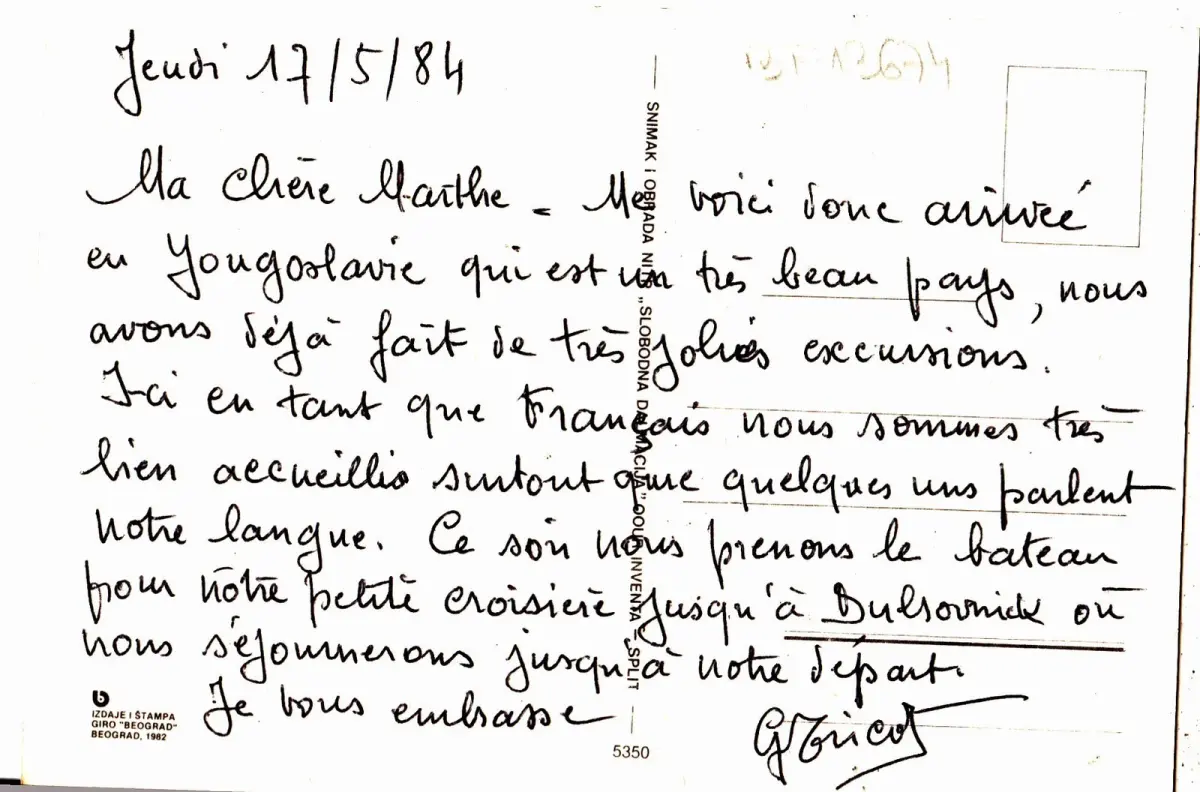 Jeudi 17/5/84
Ma chère Marthe - Me voici donc arrivée
en Yougoslavie qui est un très beau pays, nous
avons déjà fait de très jolies excursions.
Ici en tant que Français nous sommes très
bien accueillis surtout que quelques uns parlent
notre langue. Ce soir nous prenons le bateau
pour nôtre petite croisière jusqu'à Dubrovnick où
nous séjournerons jusqu'à notre départ.
Je vous embrasse
SNIMAK I OBRADA "SLOBODNA DALMACIJA" OOUR INVENTA – SPLIT
5350
b
IZDAJE I ŠTAMPA
GIRO "BEOGRAD"
BEOGRAD, 1982